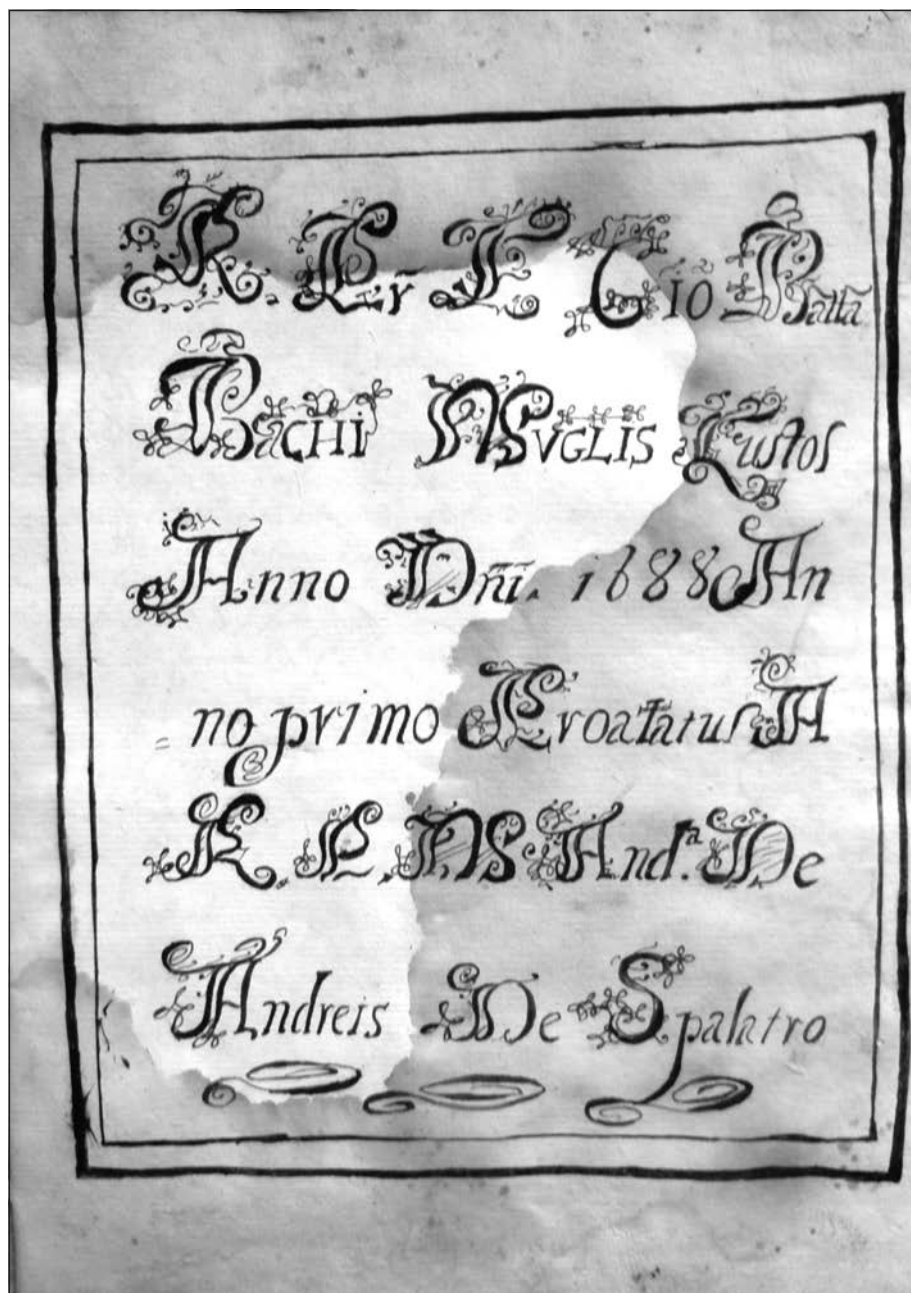 R. Pr̃ F Gio Batta
Bachi Mvglis Custos
Anno Dñi. 1688 An
= no primo Proatatus A
R. P. M. And.ª De
Andreis De Spalatro